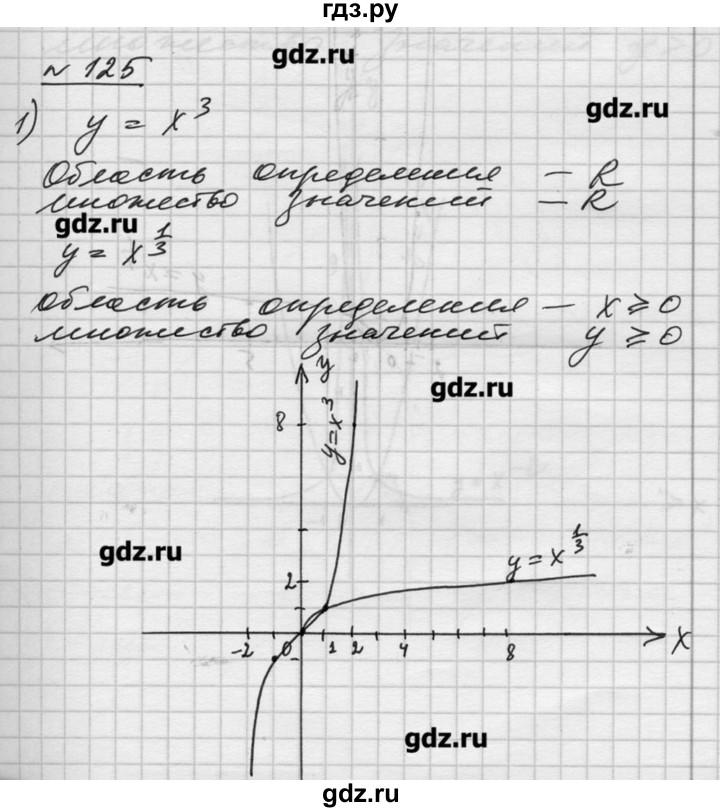 гдз.ру
gdz.ru
№ 125
gdz.ru
1) y = x³
Область определения — R
множество значений — R
gdz.ru
y = x^{1/3}
область определения — x ⩾ 0
множество значений y ⩾ 0
y
gdz.ru
8
y=x³
gdz.ru
y = x^{1/3}
2
-2 0 1 2 4 8 x
gdz.ru
gdz.ru